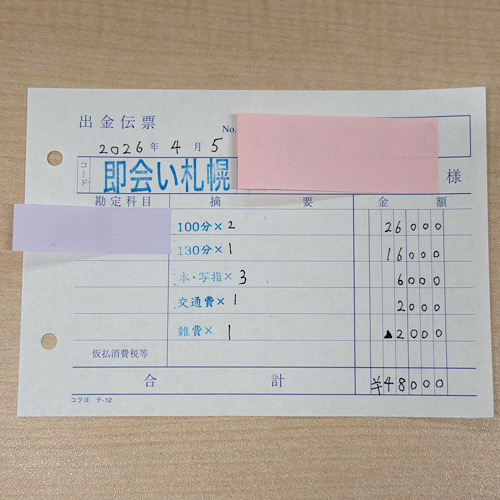 出金伝票 No.
2026年 4月 5
コード 即会い札幌 様
勘定科目 摘要 金額
100分×2 26000
130分×1 16000
本・写指×3 6000
交通費×1 2000
雑費×1 ▲2000
仮払消費税等
合計 ¥48000
コクヨ テ-12